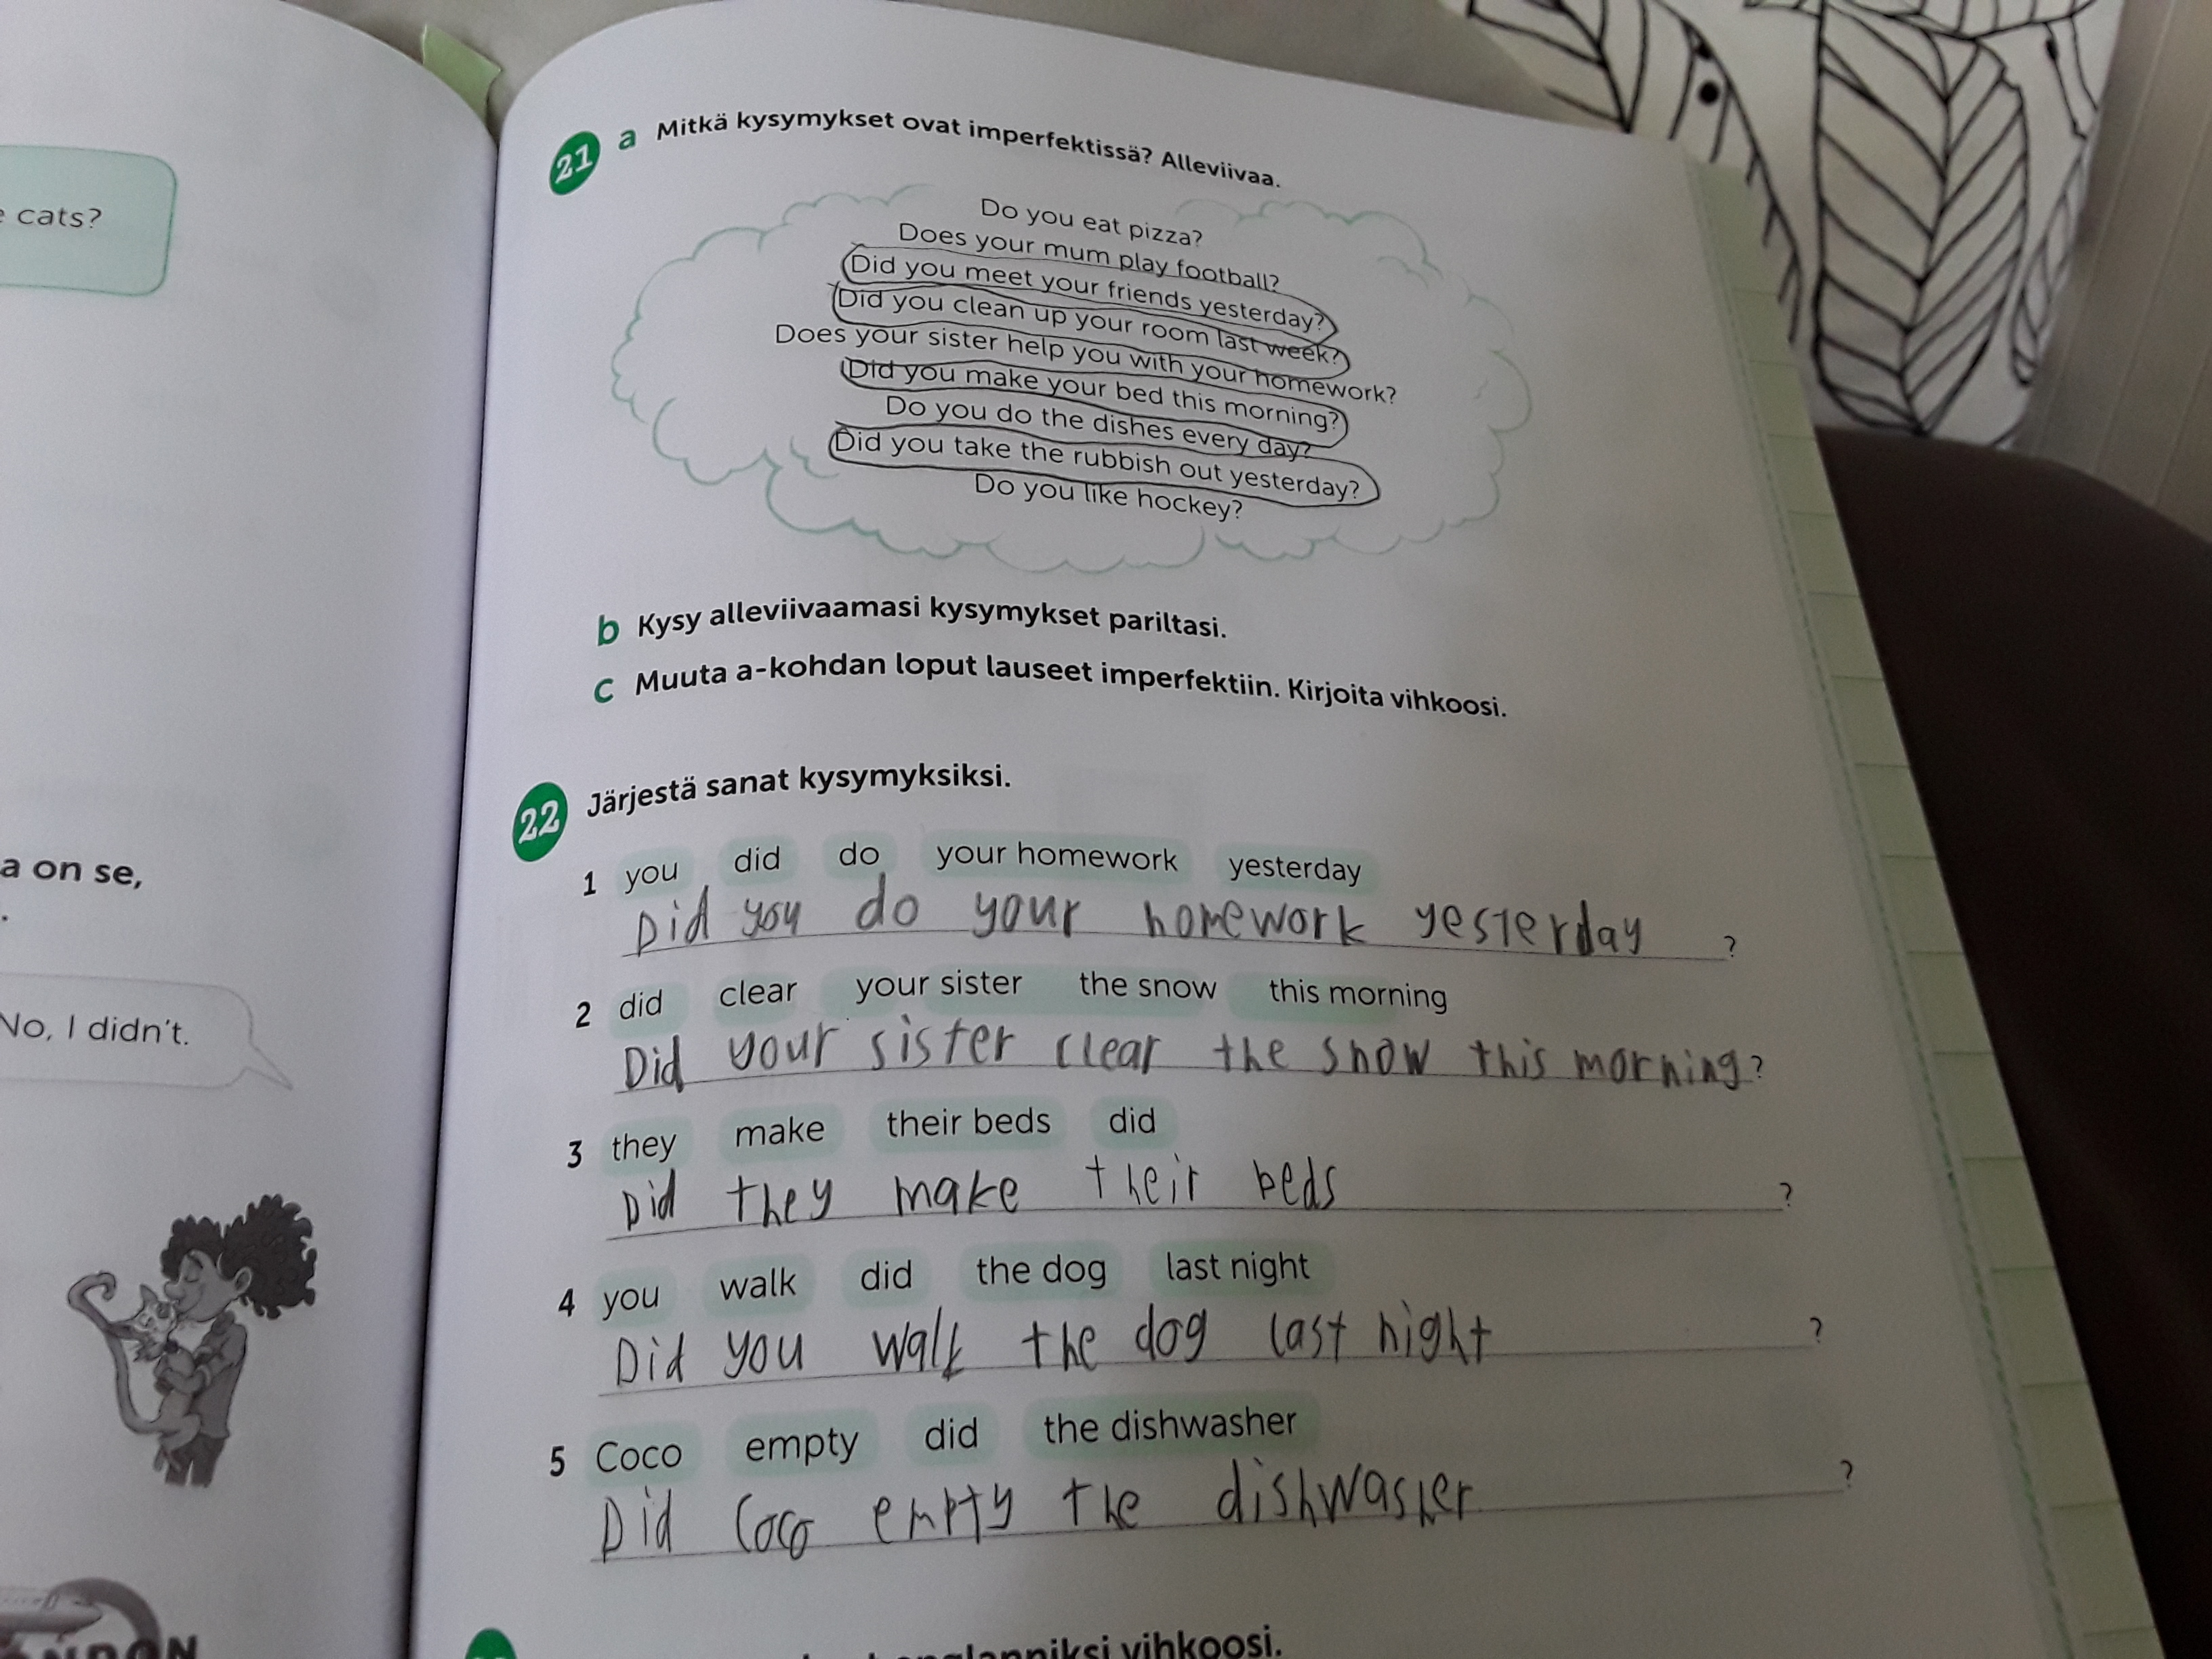 cats?
a on se,
.
No, I didn't.
21 a Mitkä kysymykset ovat imperfektissä? Alleviivaa.
Do you eat pizza?
Does your mum play football?
Did you meet your friends yesterday?
Did you clean up your room last week?
Does your sister help you with your homework?
Did you make your bed this morning?
Do you do the dishes every day?
Did you take the rubbish out yesterday?
Do you like hockey?
b Kysy alleviivaamasi kysymykset pariltasi.
c Muuta a-kohdan loput lauseet imperfektiin. Kirjoita vihkoosi.
22 Järjestä sanat kysymyksiksi.
1 you did do your homework yesterday
Did you do your homework yesterday ?
2 did clear your sister the snow this morning
Did your sister clear the snow this morning ?
3 they make their beds did
Did they make their beds ?
4 you walk did the dog last night
Did you walk the dog last night ?
5 Coco empty did the dishwasher
Did Coco empty the dishwasher ?
vihkoosi.